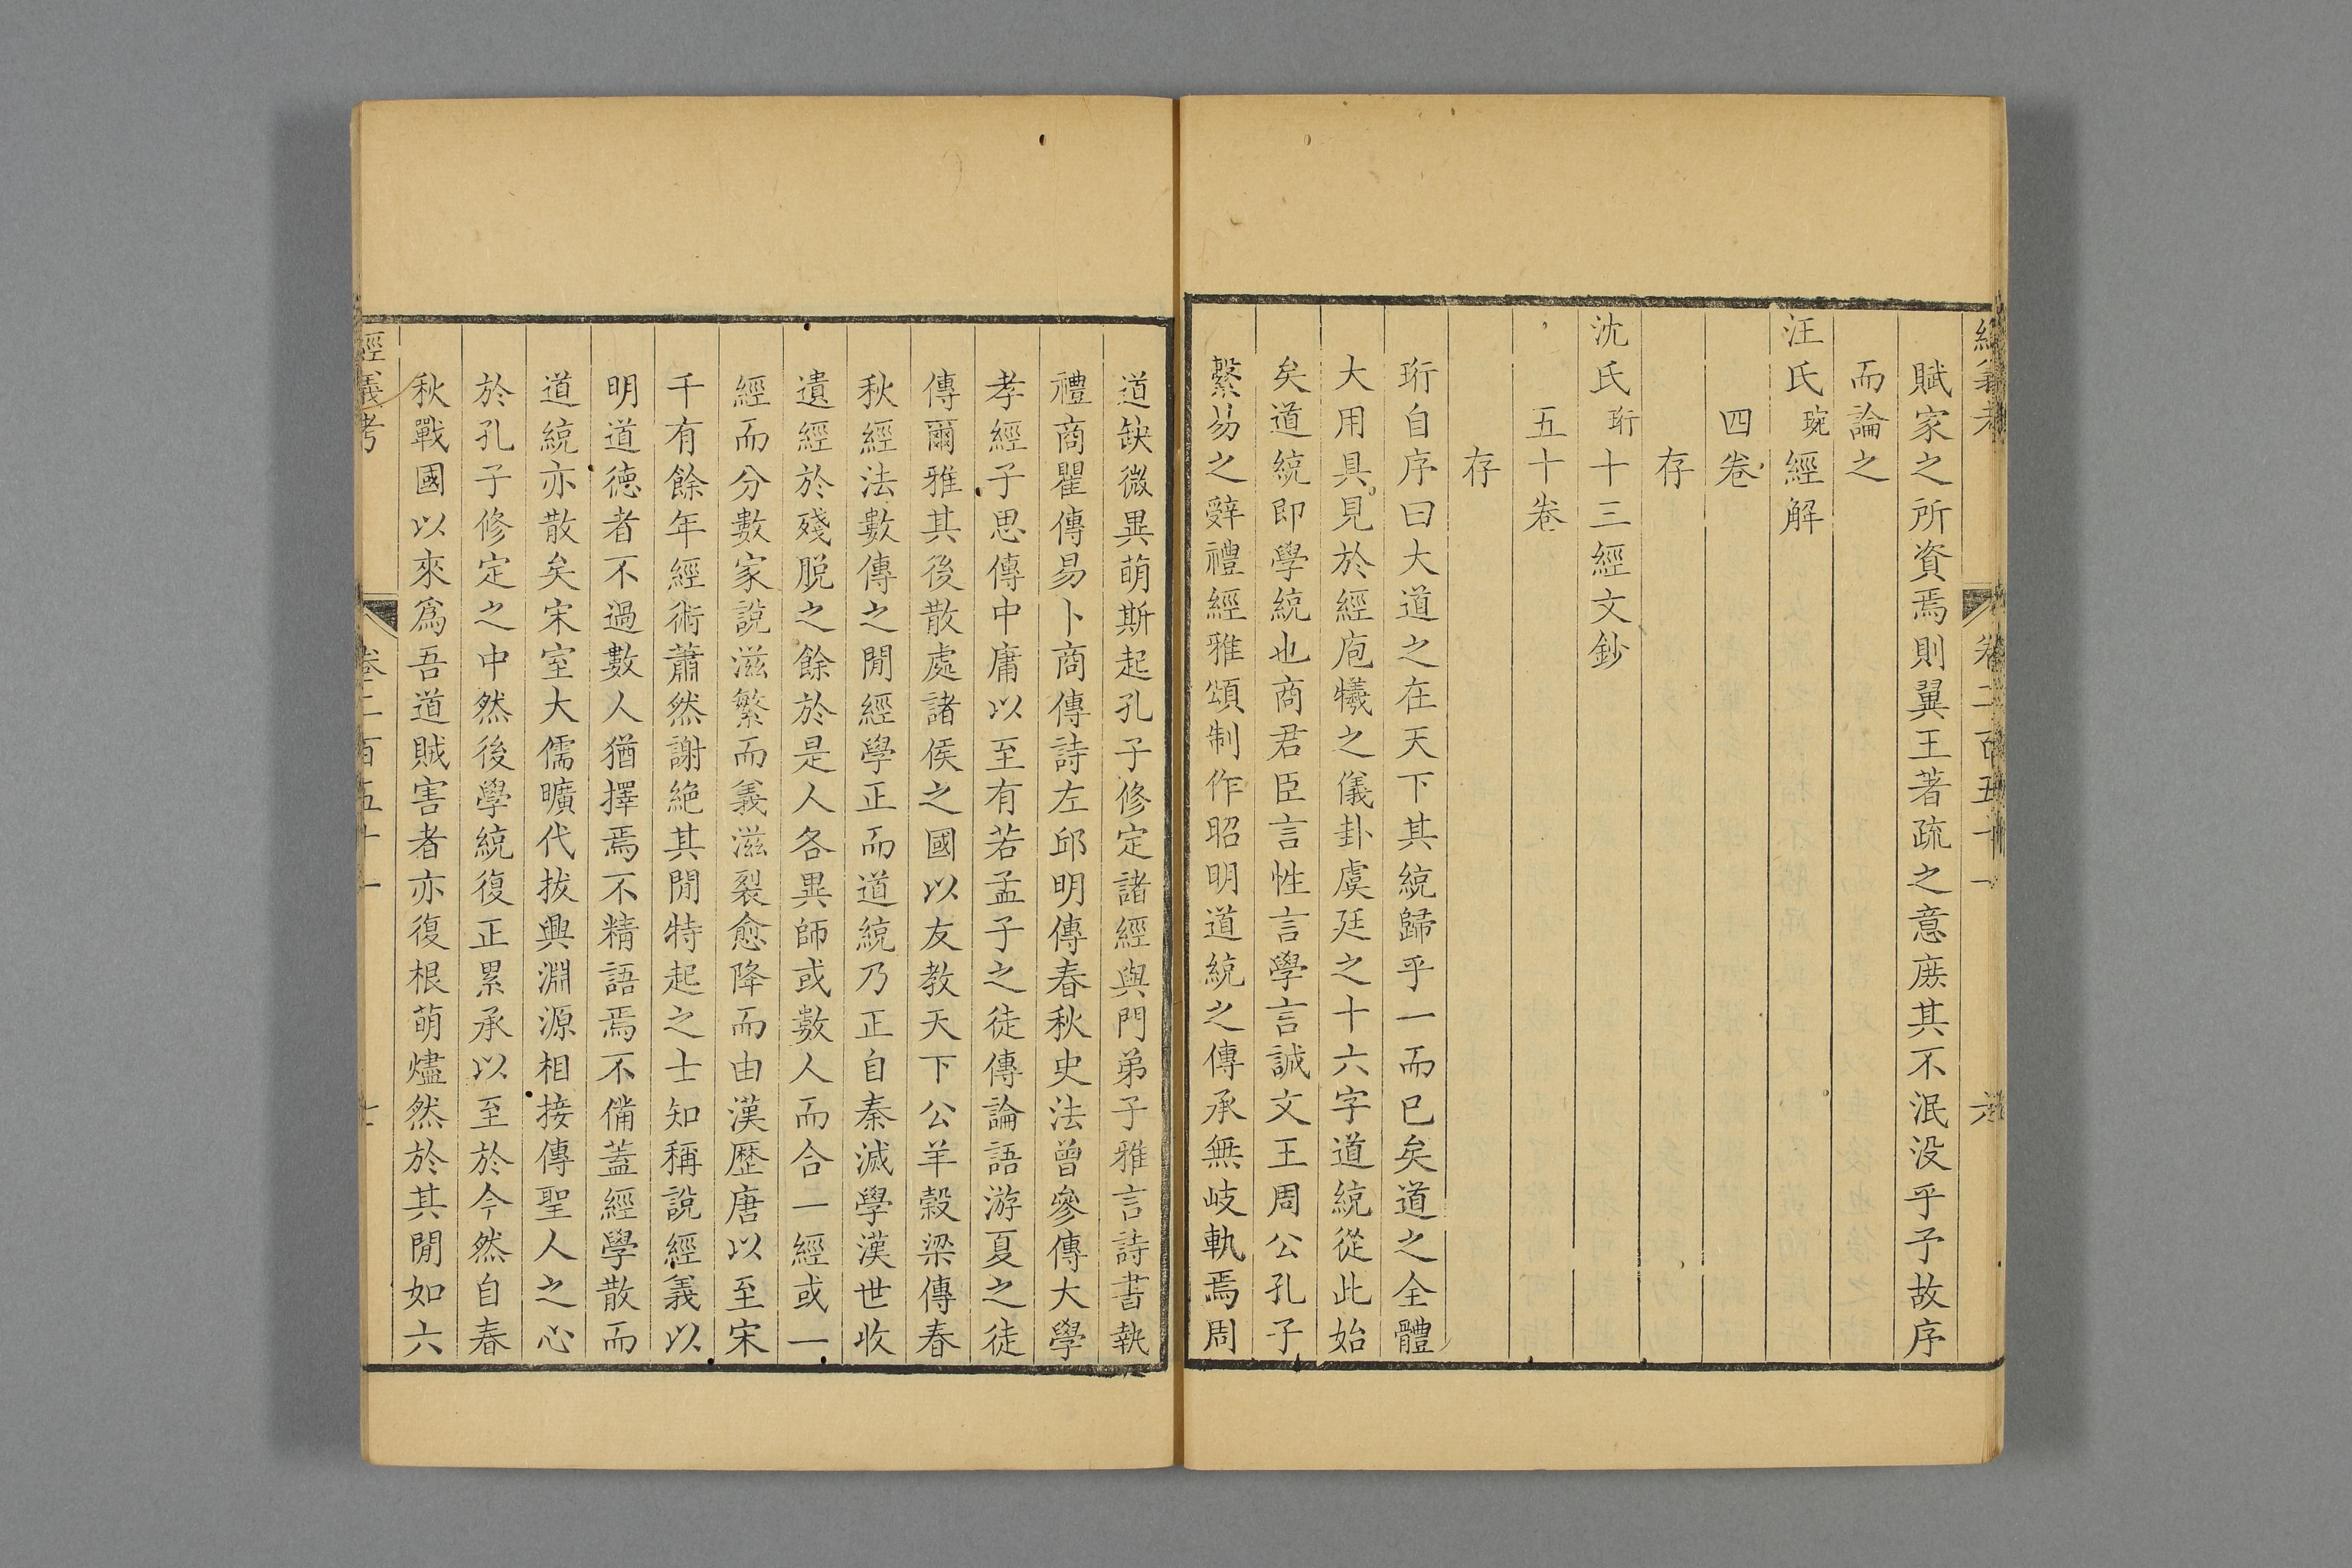 經義考 卷二百五十一 六
賦家之所資焉則翼王著疏之意庶其不泯没乎予故序
而論之
汪氏琬經解
四卷
存
沈氏珩十三經文鈔
五十卷
存
珩自序曰大道之在天下其統歸乎一而已矣道之全體
大用具見於經庖犧之儀卦虞廷之十六字道統從此始
矣道統即學統也商君臣言性言學言誠文王周公孔子
繫易之辭禮經雅頌制作昭明道統之傳承無岐軌焉周
道缺微異萌斯起孔子修定諸經與門弟子雅言詩書執
禮商瞿傳易卜商傳詩左邱明傳春秋史法曾參傳大學
孝經子思傳中庸以至有若孟子之徒傳論語游夏之徒
傳爾雅其後散處諸侯之國以友教天下公羊穀梁傳春
秋經法數傳之閒經學正而道統乃正自秦滅學漢世收
遺經於殘脱之餘於是人各異師或數人而合一經或一
經而分數家說滋繁而義滋裂愈降而由漢歷唐以至宋
千有餘年經術蕭然謝絶其閒特起之士知稱說經義以
明道德者不過數人猶擇焉不精語焉不備蓋經學散而
道統亦散矣宋室大儒曠代拔興淵源相接傳聖人之心
於孔子修定之中然後學統復正累承以至於今然自春
秋戰國以來爲吾道賊害者亦復根萌燼然於其閒如六
經義考 卷二百五十一 七